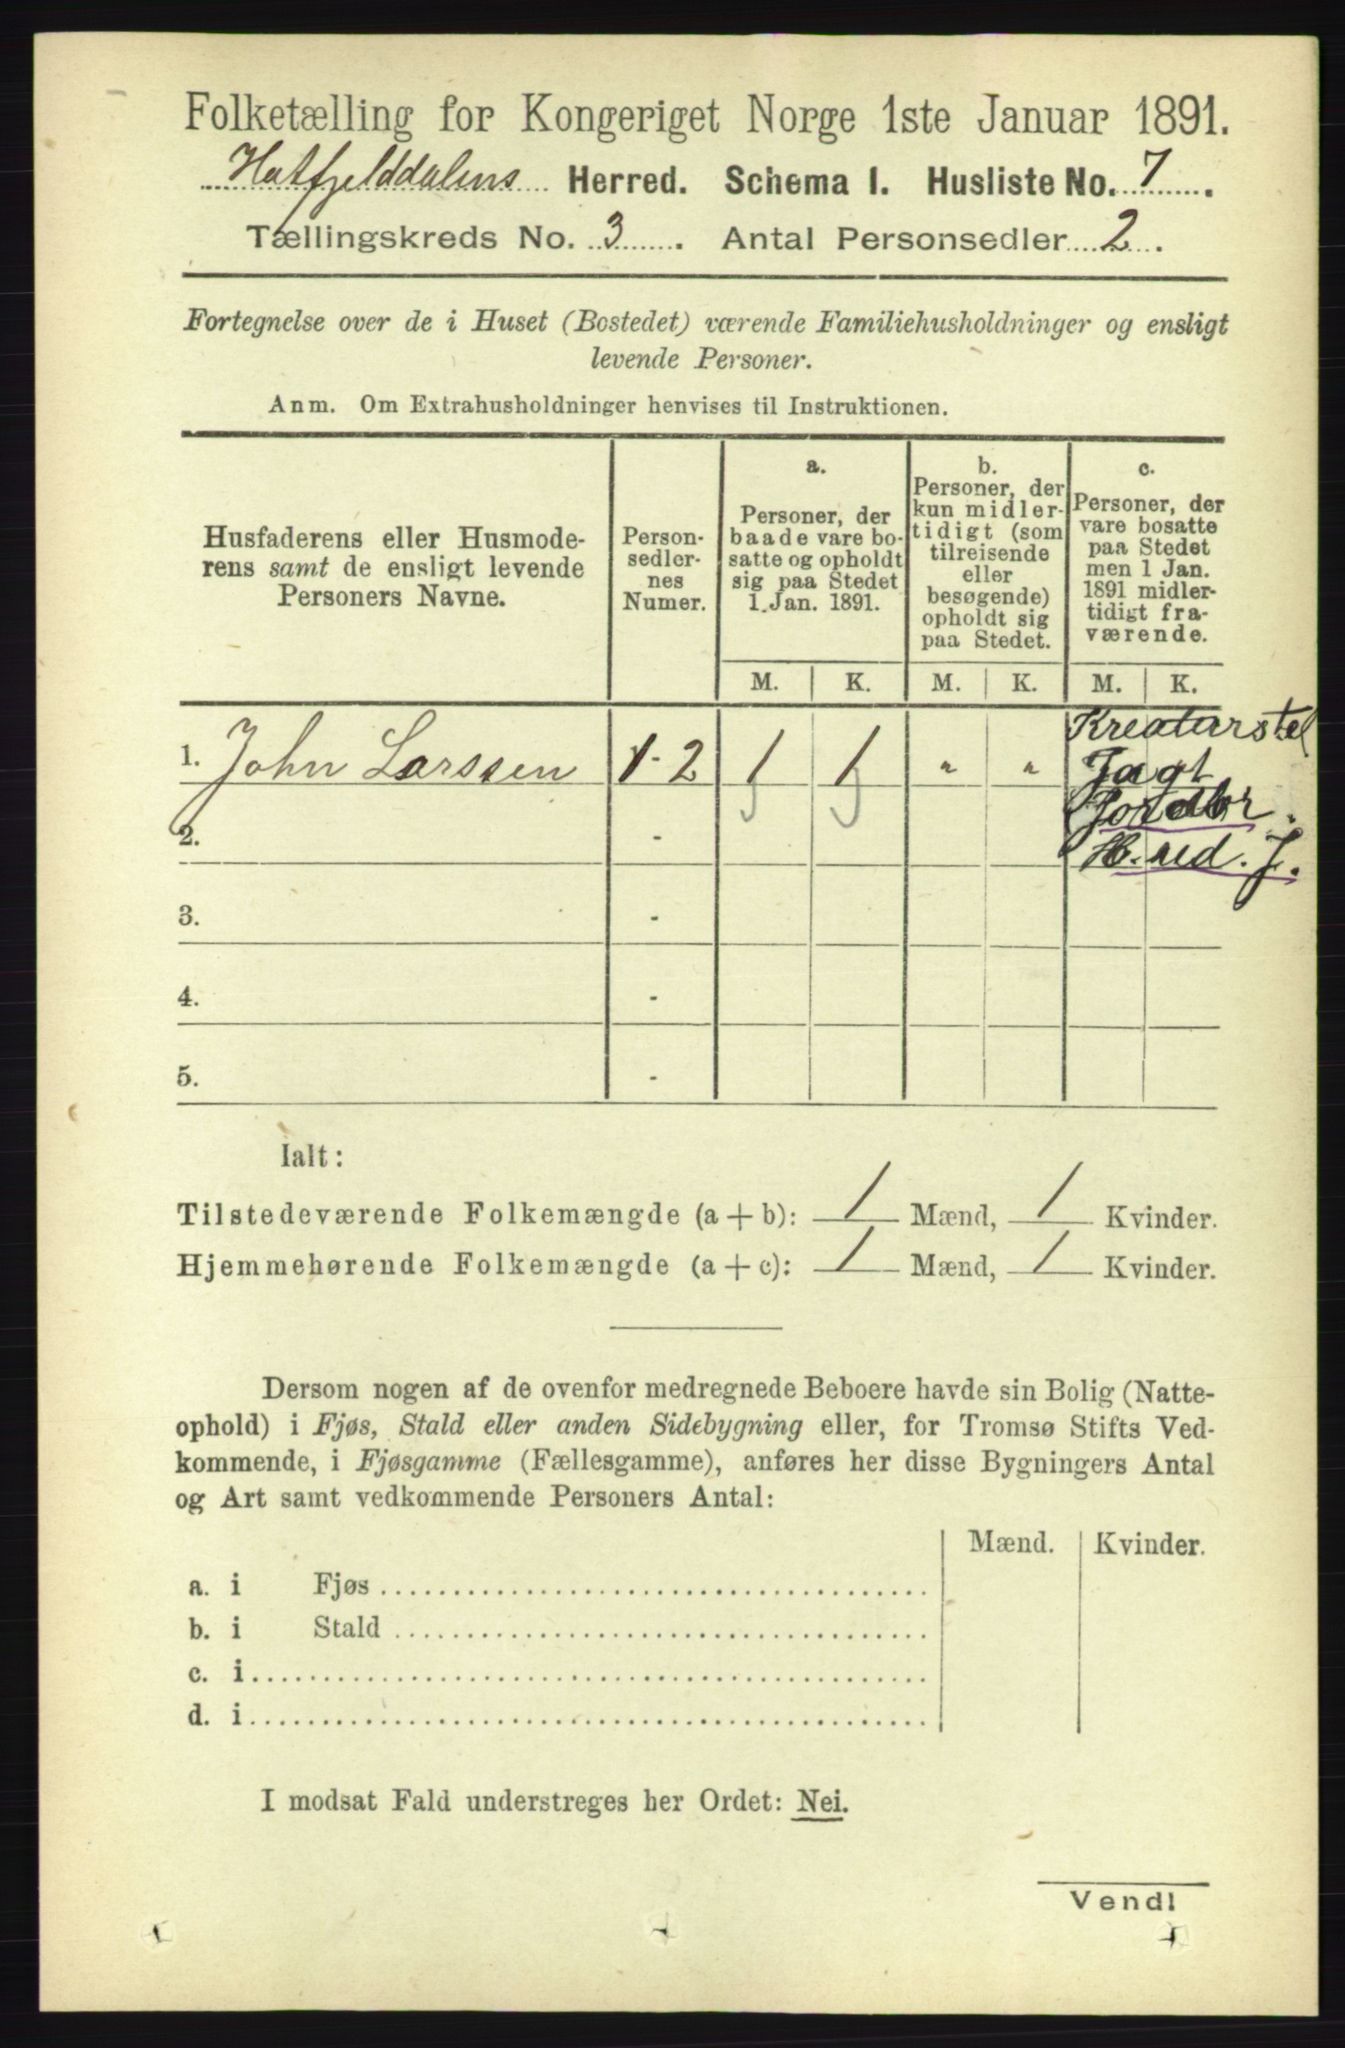 Folketælling for Kongeriget Norge 1ste Januar 1891.
Hatfjelddalens Herred. Schema I. Husliste No. 7.
Tællingskreds No. 3. Antal Personsedler 2.
Fortegnelse over de i Huset (Bostedet) værende Familiehusholdninger og ensligt
levende Personer.
Anm. Om Extrahusholdninger henvises til Instruktionen.
Husfaderens eller Husmode-
rens samt de ensligt levende
Personers Navne.
Person-
sedler-
nes
Numer.
a.
Personer, der
baade vare bo-
satte og opholdt
sig paa Stedet
1. Jan. 1891.
b.
Personer, der
kun midler-
tidigt (som
tilreisende
eller
besøgende)
opholdt sig
paa Stedet.
c.
Personer, der
vare bosatte
paa Stedet
men 1 Jan.
1891 midler-
tidigt fra-
værende.
M. K. M. K. M. K.
Kreaturstel
1. John Larssen 1-2 1 1 " " Jagt
Jordbr.
2. - H. ved. J.
3. -
4. -
5. -
Ialt:
Tilstedeværende Folkemængde (a + b): 1 Mænd, 1 Kvinder.
Hjemmehørende Folkemængde (a + c): 1 Mænd, 1 Kvinder.
Dersom nogen af de ovenfor medregnede Beboere havde sin Bolig (Natte-
ophold) i Fjøs, Stald eller anden Sidebygning eller, for Tromsø Stifts Ved-
kommende, i Fjøsgamme (Fællesgamme), anføres her disse Bygningers Antal
og Art samt vedkommende Personers Antal:
Mænd. Kvinder.
a. i Fjøs
b. i Stald
c. i
d. i
I modsat Fald understreges her Ordet: Nei.
Vend!